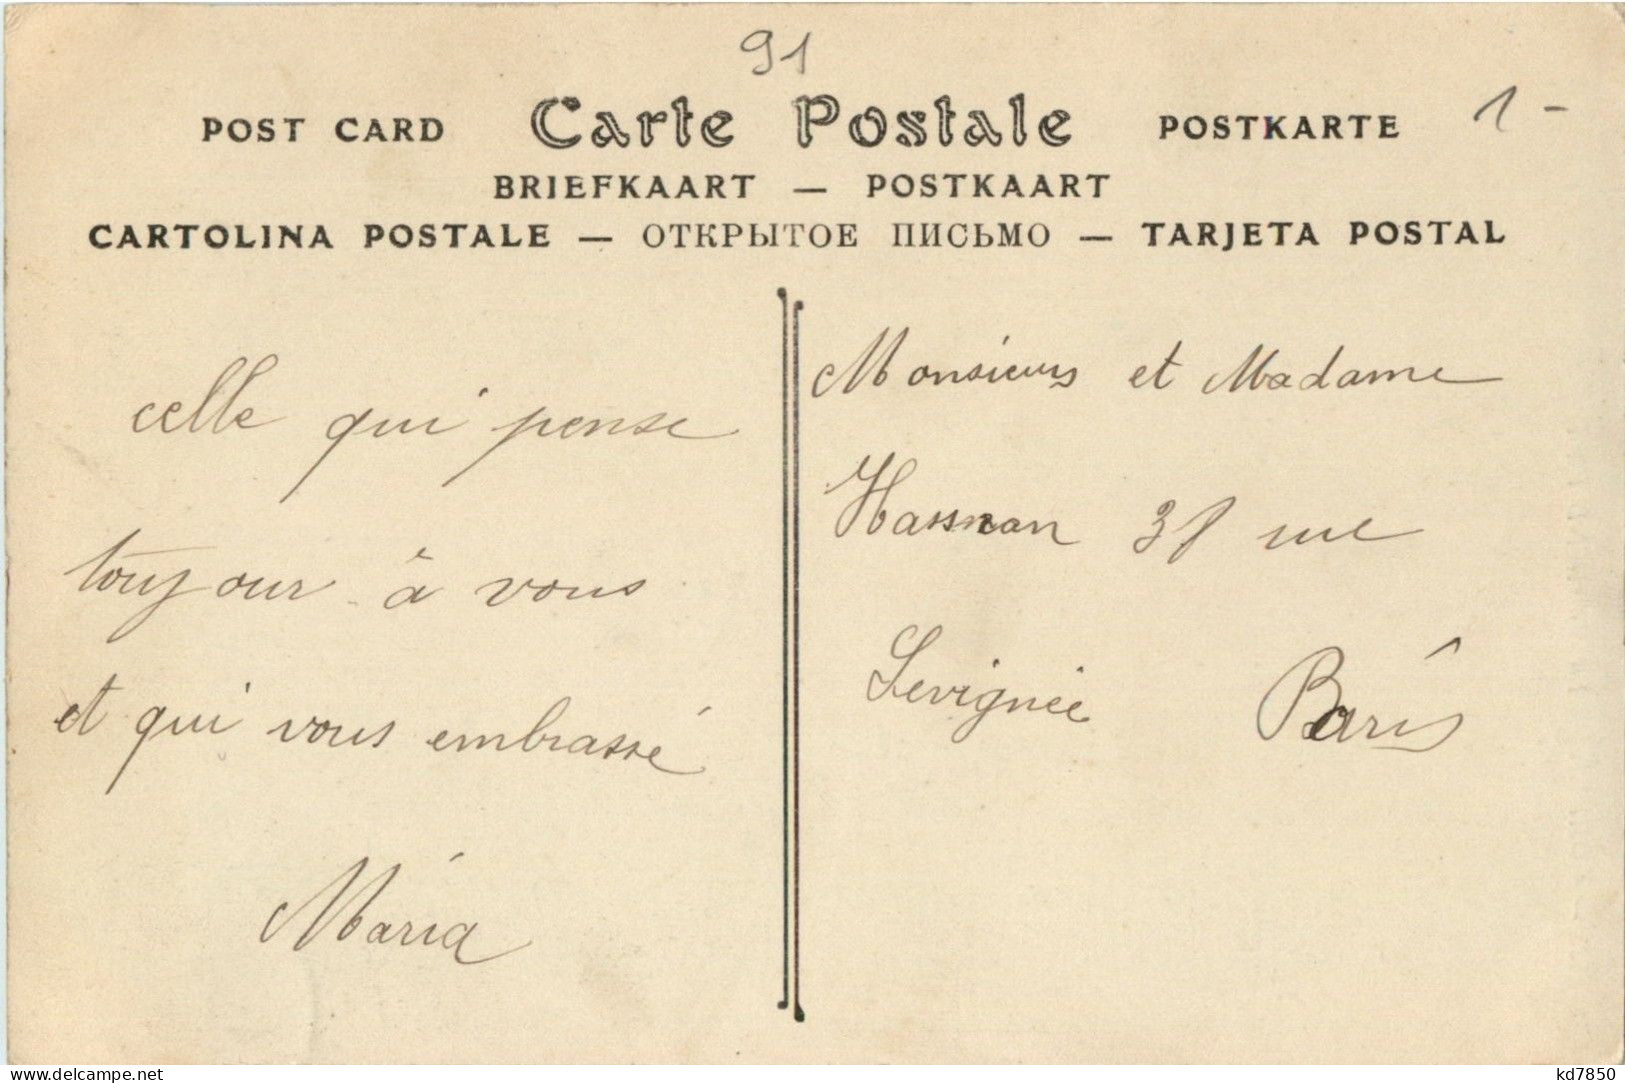 91
POST CARD Carte Postale POSTKARTE 1-
BRIEFKAART — POSTKAART
CARTOLINA POSTALE — ОТКРЫТОЕ ПИСЬМО — TARJETA POSTAL
celle qui pense
toujour à vous
et qui vous embrassé
Maria
Monsieurs et Madame
Hassnan 31 rue
Sevignée Parîs
www.delcampe.net
kd7850